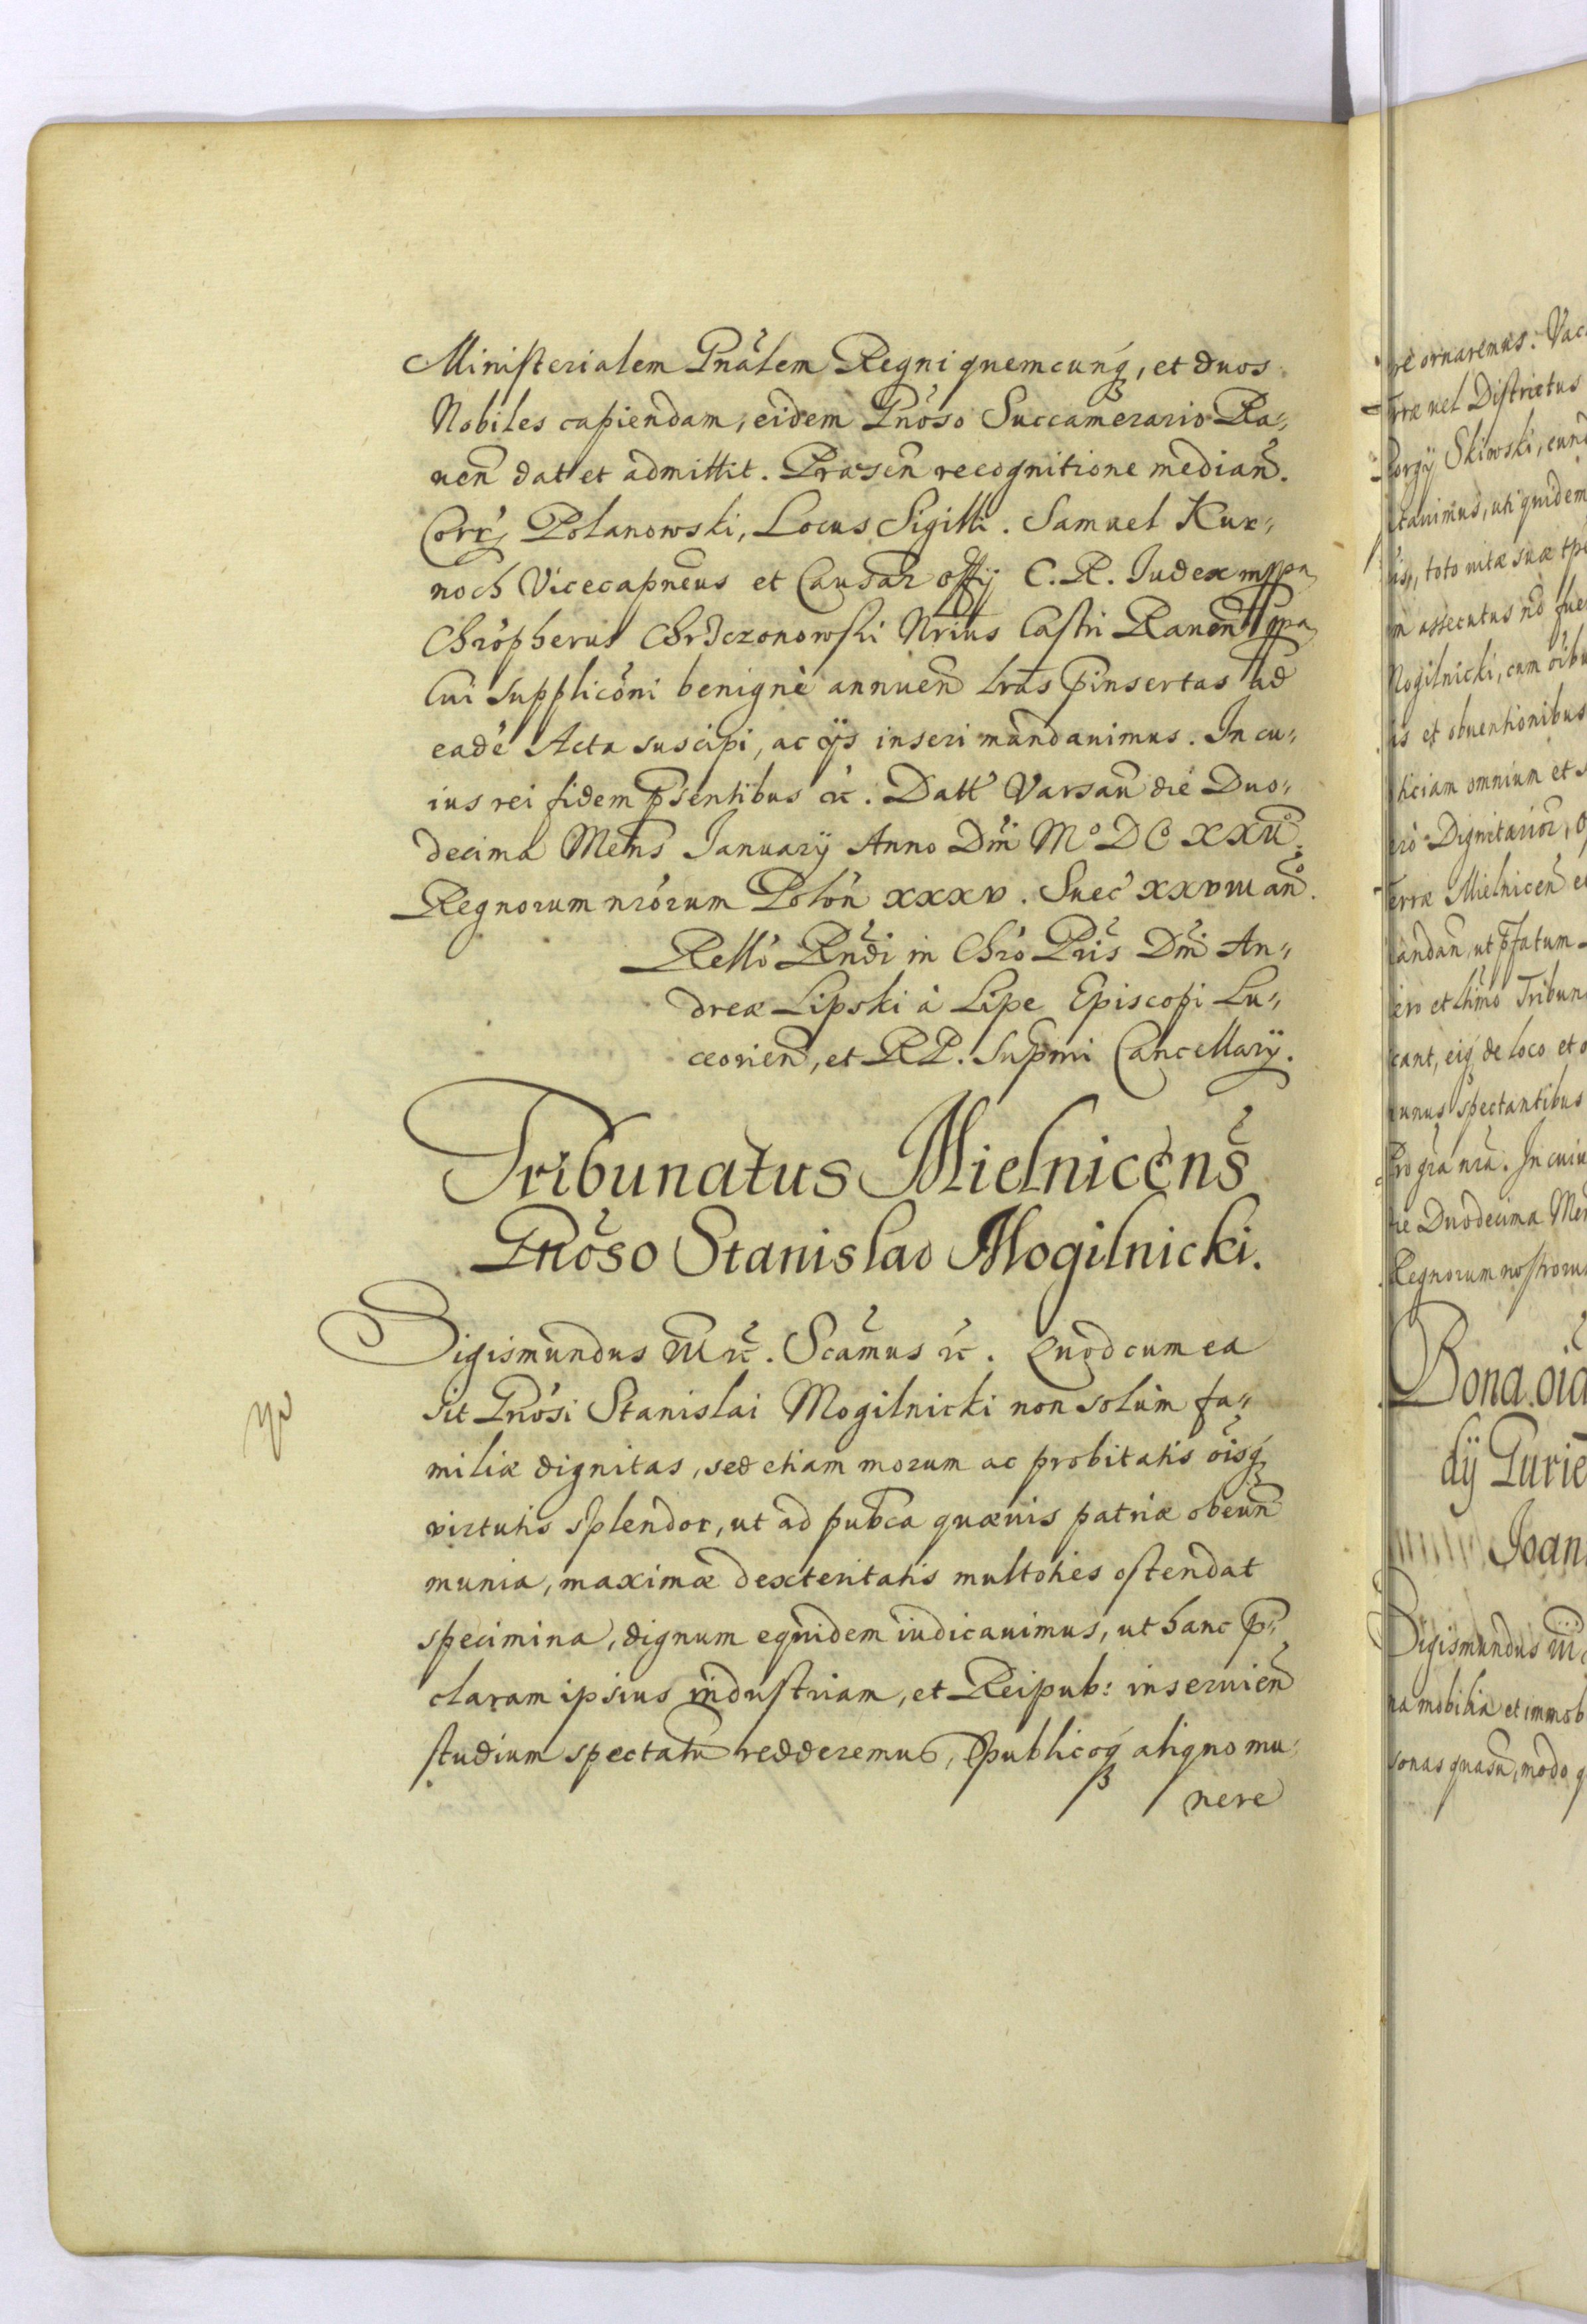 Ministerialem Gnãlem Regni quemcunq₃, et duos
Nobiles capiendam, eidem Gnõso Succamerario Ra⸗
uen̄ dat et admittit. Præsen̄ recognitione median̄.
Corr; Polanowski, Locus Sigilli. Samuel Kur⸗
noch Vicecapneus et Causar offij C. R. Iudex mppa
Chrõpherus Nrius Castri Rauen̄ mppa
Cui supplicõni benignè annuen̄ lrãs pinsertas ad
eadē Acta suscipi, ac ijs inseri mandauimus. In cu⸗
ius rei fidem p̄sentibus &c. Datt Varsau die Duo⸗
decima Mens̄ Ianuarÿ Anno Dm̃ Mº DCº XXIIº.
Regnorum nr̃orum Polon̄ xxxv. Suec̄ xxviii añº.
Rellõ Rñdi in Chrõ Pris̃ Dm̃ An⸗
dreæ Lipski à Lipe Episcopi Lu⸗
ceorien̄, et R P. Supmi Cancellarÿ.
Tribunatus Mielnicens̃
Gnõso Stanislao Mogilnicki.
Sigismundus III &c̃. Scãmus &c. Quod cum ea
sit Gnõsi Stanislai Mogilnicki non solùm fa⸗
miliæ dignitas, sed etiam morum ac probitatis õisq₃
virtutis splendor, ut ad pubca quæuis patriæ obeun̄
munia, maximæ dexteritatis multoties ostendat
specimina, dignum equidem iudicauimus, ut hanc p̄⸗
claram ipsius industriam, et Reipub: inseruien̄
studium spectatū redderemus, publicoq₃ aliquo mu⸗
nere
re ornaremus. Vac
Terræ uel Districtus
Skiwski, eund
quidem
toto uitæ suæ tp
assecutus nõ fue
Mogilnicki, cum õibu
is et obuentionibus
omnium et
Dignitarior, O
Terræ Mielnicen̄ e
andan̄, ut p̄fatum
ero et ltimo Tribun
cant, eiq₃ de loco et o
munus spectantibus
Pro grã nrã. In cuiu
ie Duodecima Men
Regnorum nostroru
Bona oia
dÿ Gurie
Ioan
Sigismundus III
na mobilia et immob
sonas quasu, modo q